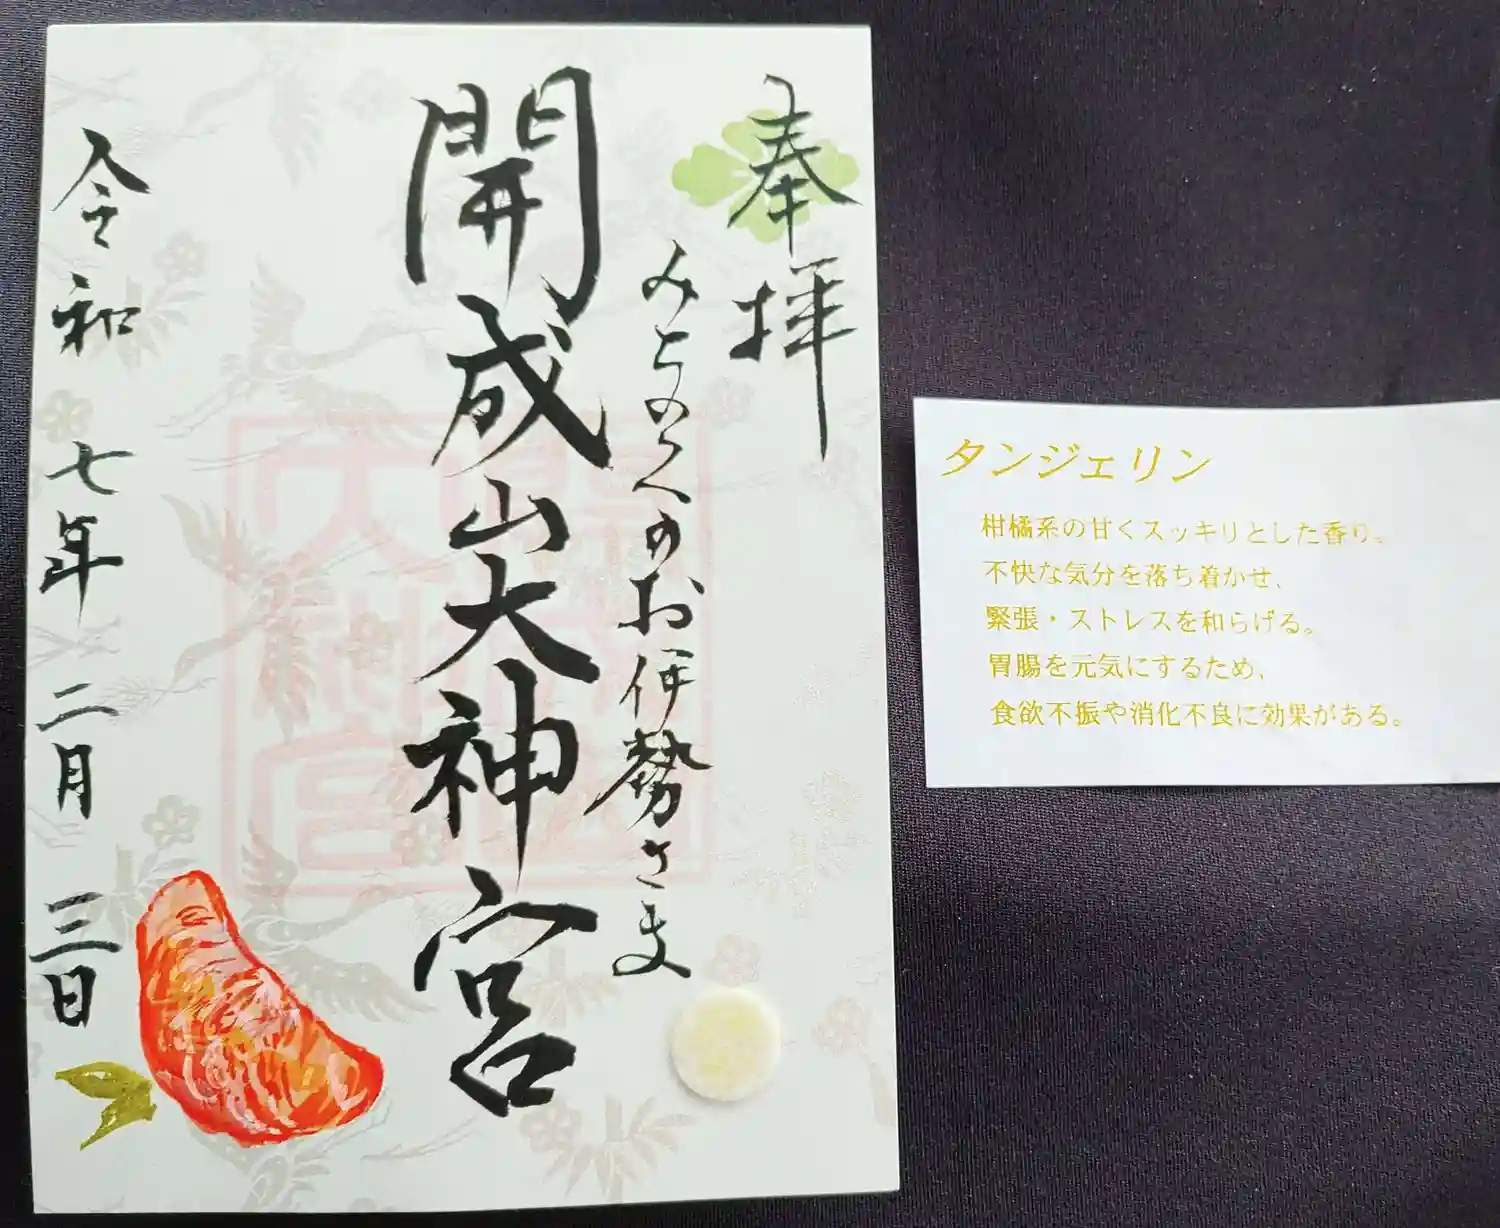 奉拝
みちのくのお伊勢さま
開成山大神宮
令和七年二月三日
タンジェリン
柑橘系の甘くスッキリとした香り。
不快な気分を落ち着かせ、
緊張・ストレスを和らげる。
胃腸を元気にするため、
食欲不振や消化不良に効果がある。